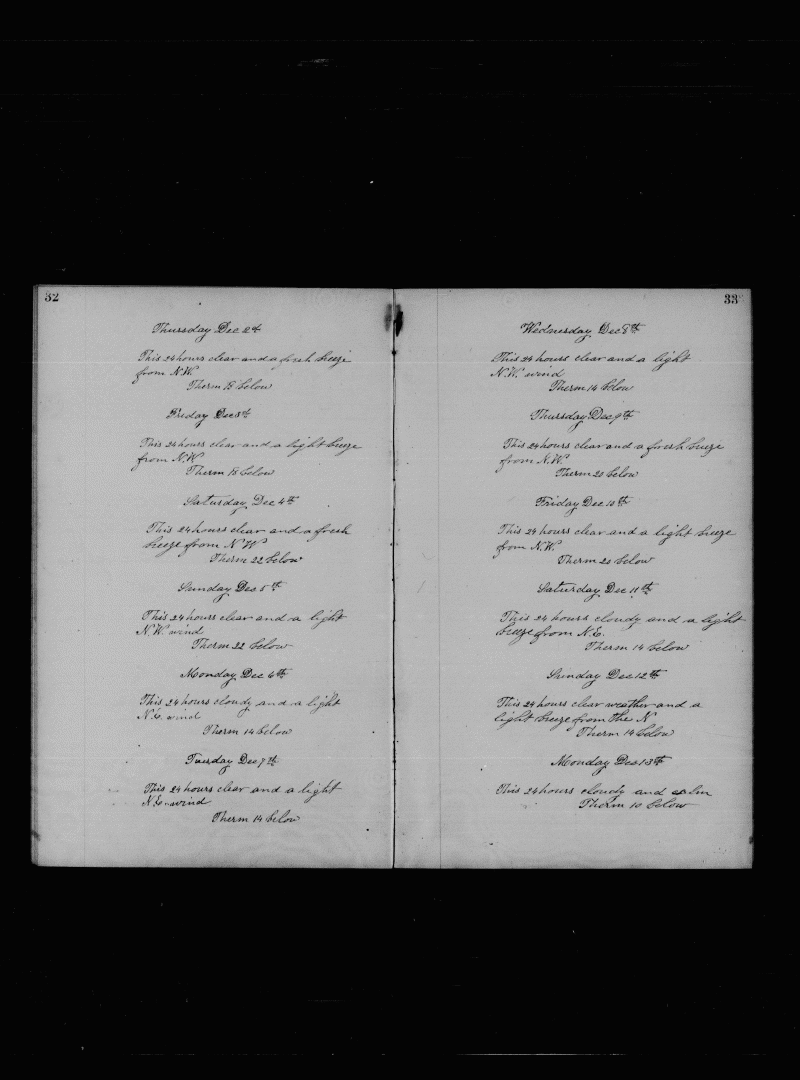 32
Thursday Dec 2d
This 24 hours clear and a fresh breeze
from N.W.
Therm 18 below
Friday Dec 3d
This 24 hours clear and a light breeze
from N.W
Therm 18 below
Saturday, Dec 4th
This 24 hours clear and a fresh
breeze from N W
Therm 22 below
Sunday Dec 5th
This 24 hours clear and a light
N.W. wind
Therm 22 below
Monday Dec 6th
This 24 hours cloudy and a light
N.E. wind
Therm 14 below
Tuesday Dec 7th
This 24 hours clear and a light
N.E. wind
Therm 14 below
33
Wednesday Dec 8th
This 24 hours clear and a light
N.W. wind
Therm 14 below
Thursday Dec 9th
This 24 hours clear and a fresh breeze
from N.W.
Therm 20 below
Friday Dec 10th
This 24 hours clear and a light breeze
from N.W.
Therm 20 below
Saturday Dec 11th
This 24 hours cloudy and a light
breeze from N.E.
Therm 14 below
Sunday Dec 12th
This 24 hours clear weather and a
light breeze from the N
Therm 14 below
Monday Dec 13th
This 24 hours cloudy and calm
Therm 10 below